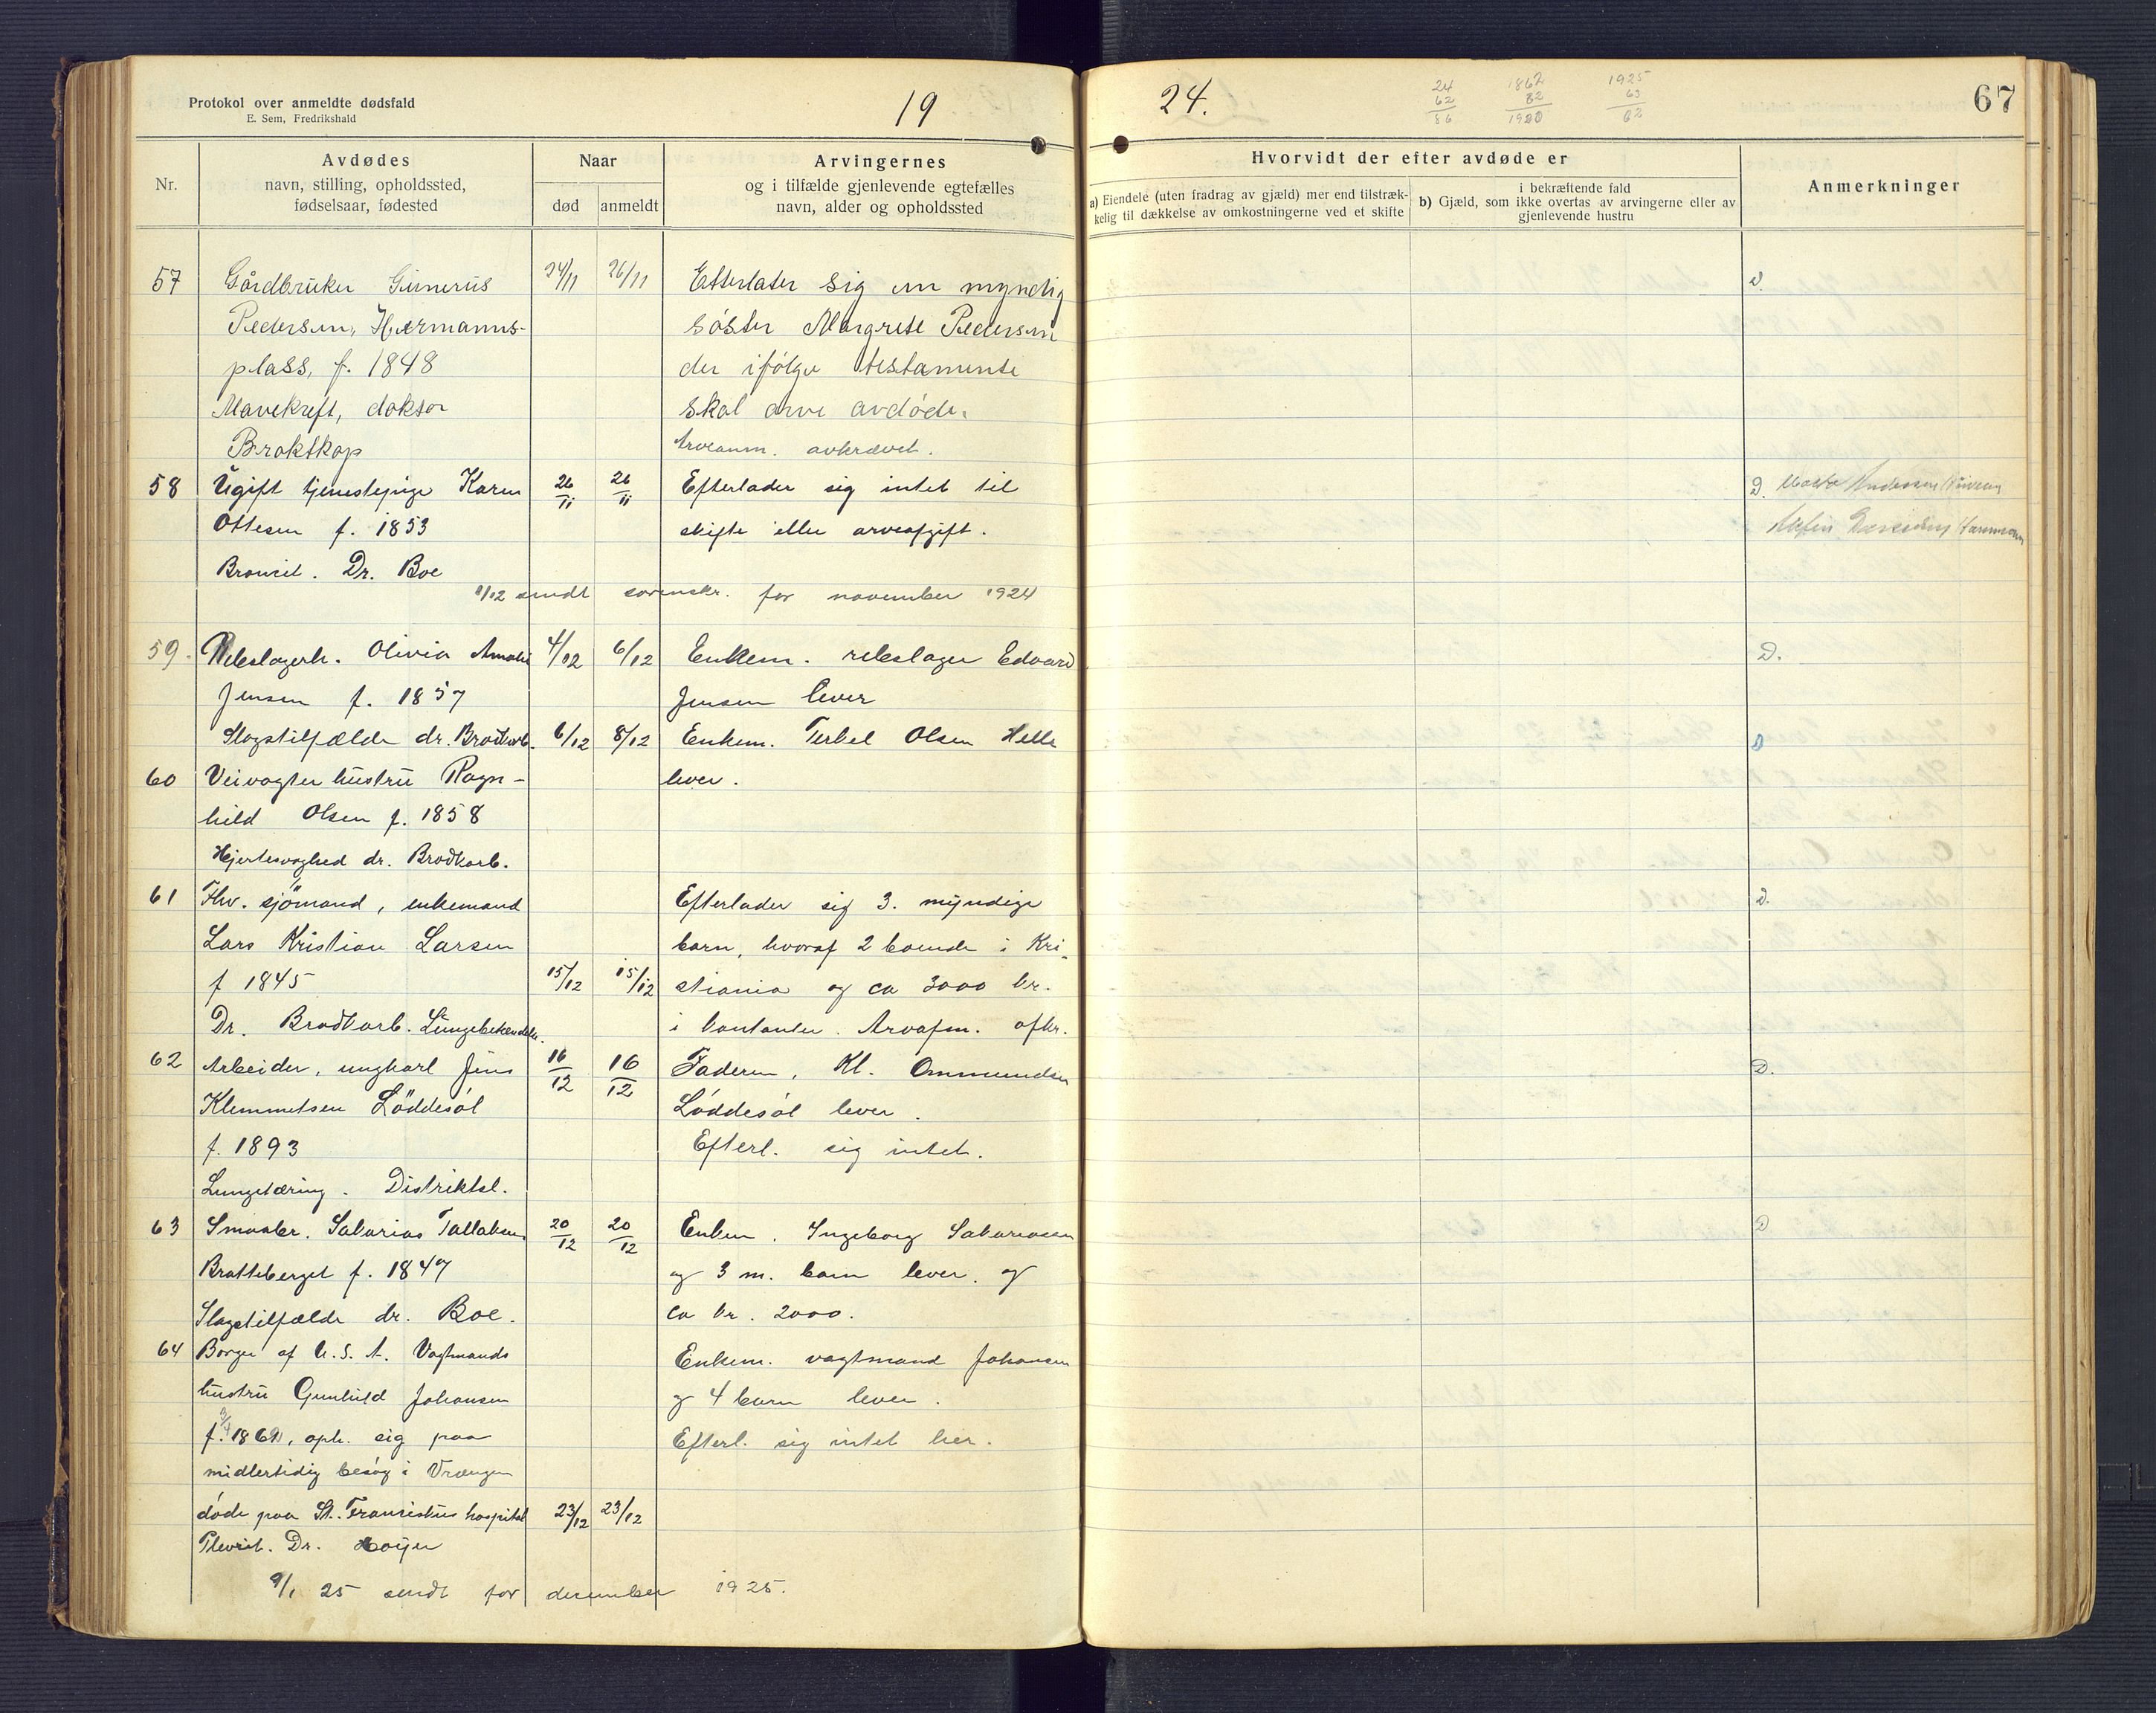 Protokol over anmeldte dødsfald
E. Sem, Fredrikshald
19
24.
24
62
86
1862
82
1920
1925
63
62
67
Nr.
Avdødes
navn, stilling, opholdssted,
fødselsaar, fødested
Naar
død
anmeldt
Arvingernes
og i tilfælde gjenlevende egtefælles
navn, alder og opholdssted
Hvorvidt der efter avdøde er
a) Eiendele (uten fradrag av gjæld) mer end tilstræk-
kelig til dækkelse av omkostningerne ved et skifte
i bekræftende fald
b) Gjæld, som ikke overtas av arvingerne eller av
gjenlevende hustru
Anmerkninger
57 Gårdbruker Gunerius 24/11 26/11 Efterlater sig en myndig D.
Pedersen, Hermanns- søster Margrete Pedersen
plass, f. 1848 der ifølge testamente
Mavekreft, doktor skal arve avdøde.
Broktkop Arveanm. avkrævet.
58 Ugift tjenestepige Karen 26/11 26/11 Efterlader sig intet til D. Andersen
Ottesen f. 1853 skifte eller arveafgift.
Bronsit. Dr. Boe
1/12 sendt sorenskr. for november 1924
59. Rebslagerh. Olivia Amalie 4/12 6/12 Enkem. rebslager Edvard D.
Jensen f. 1857 Jensen lever
Slagstilfælde dr. Brodkorb. 6/12 8/12 Enkem. Terkel Olsen Helle D
60 Veivogter hustru Ragn- lever.
hild Olsen f. 1858
Hjertesvaghed dr. Brodkorb.
61 Fhv. sjömand, enkemand Efterlader sig 3. myndige D.
Lars Kristian Larsen barn, hvoraf 2 boende i Kri-
f 1845 15/12 15/12 stiania og ca 3000 kr.
Dr. Brodkorb. Lungebetændelse. i kontanter. Arvafm. afkr.
62 Arbeider, ungkarl Jens 16/12 16/12 Faderen, Kl. Ommundsen D.
Klemmetsen Löddesöl Løddesøl lever.
f. 1893 Efterl. sig intet.
Lungetæring. Distriktsl.
63 Smaabr. Sakarias Tallaksen 20/12 20/12 Enken. Ingeborg Sakariasen D
Bratteberget f. 1847 og 3 m. barn lever. og
Slagstilfælde dr. Boe. ca kr. 2000.
64 Borger af U.S.A. Vagtmands Enkem. vagtmand Johansen
hustru Gunhild Johansen og 4 barn lever.
f. 1862, oph. sig paa Efterl. sig intet her.
midlertidig besøg i Vrængen
døde paa St. Franciskus hospital 23/12 23/12
Plevrit. Dr. Høyer
9/1 25 sendt for december 1925.